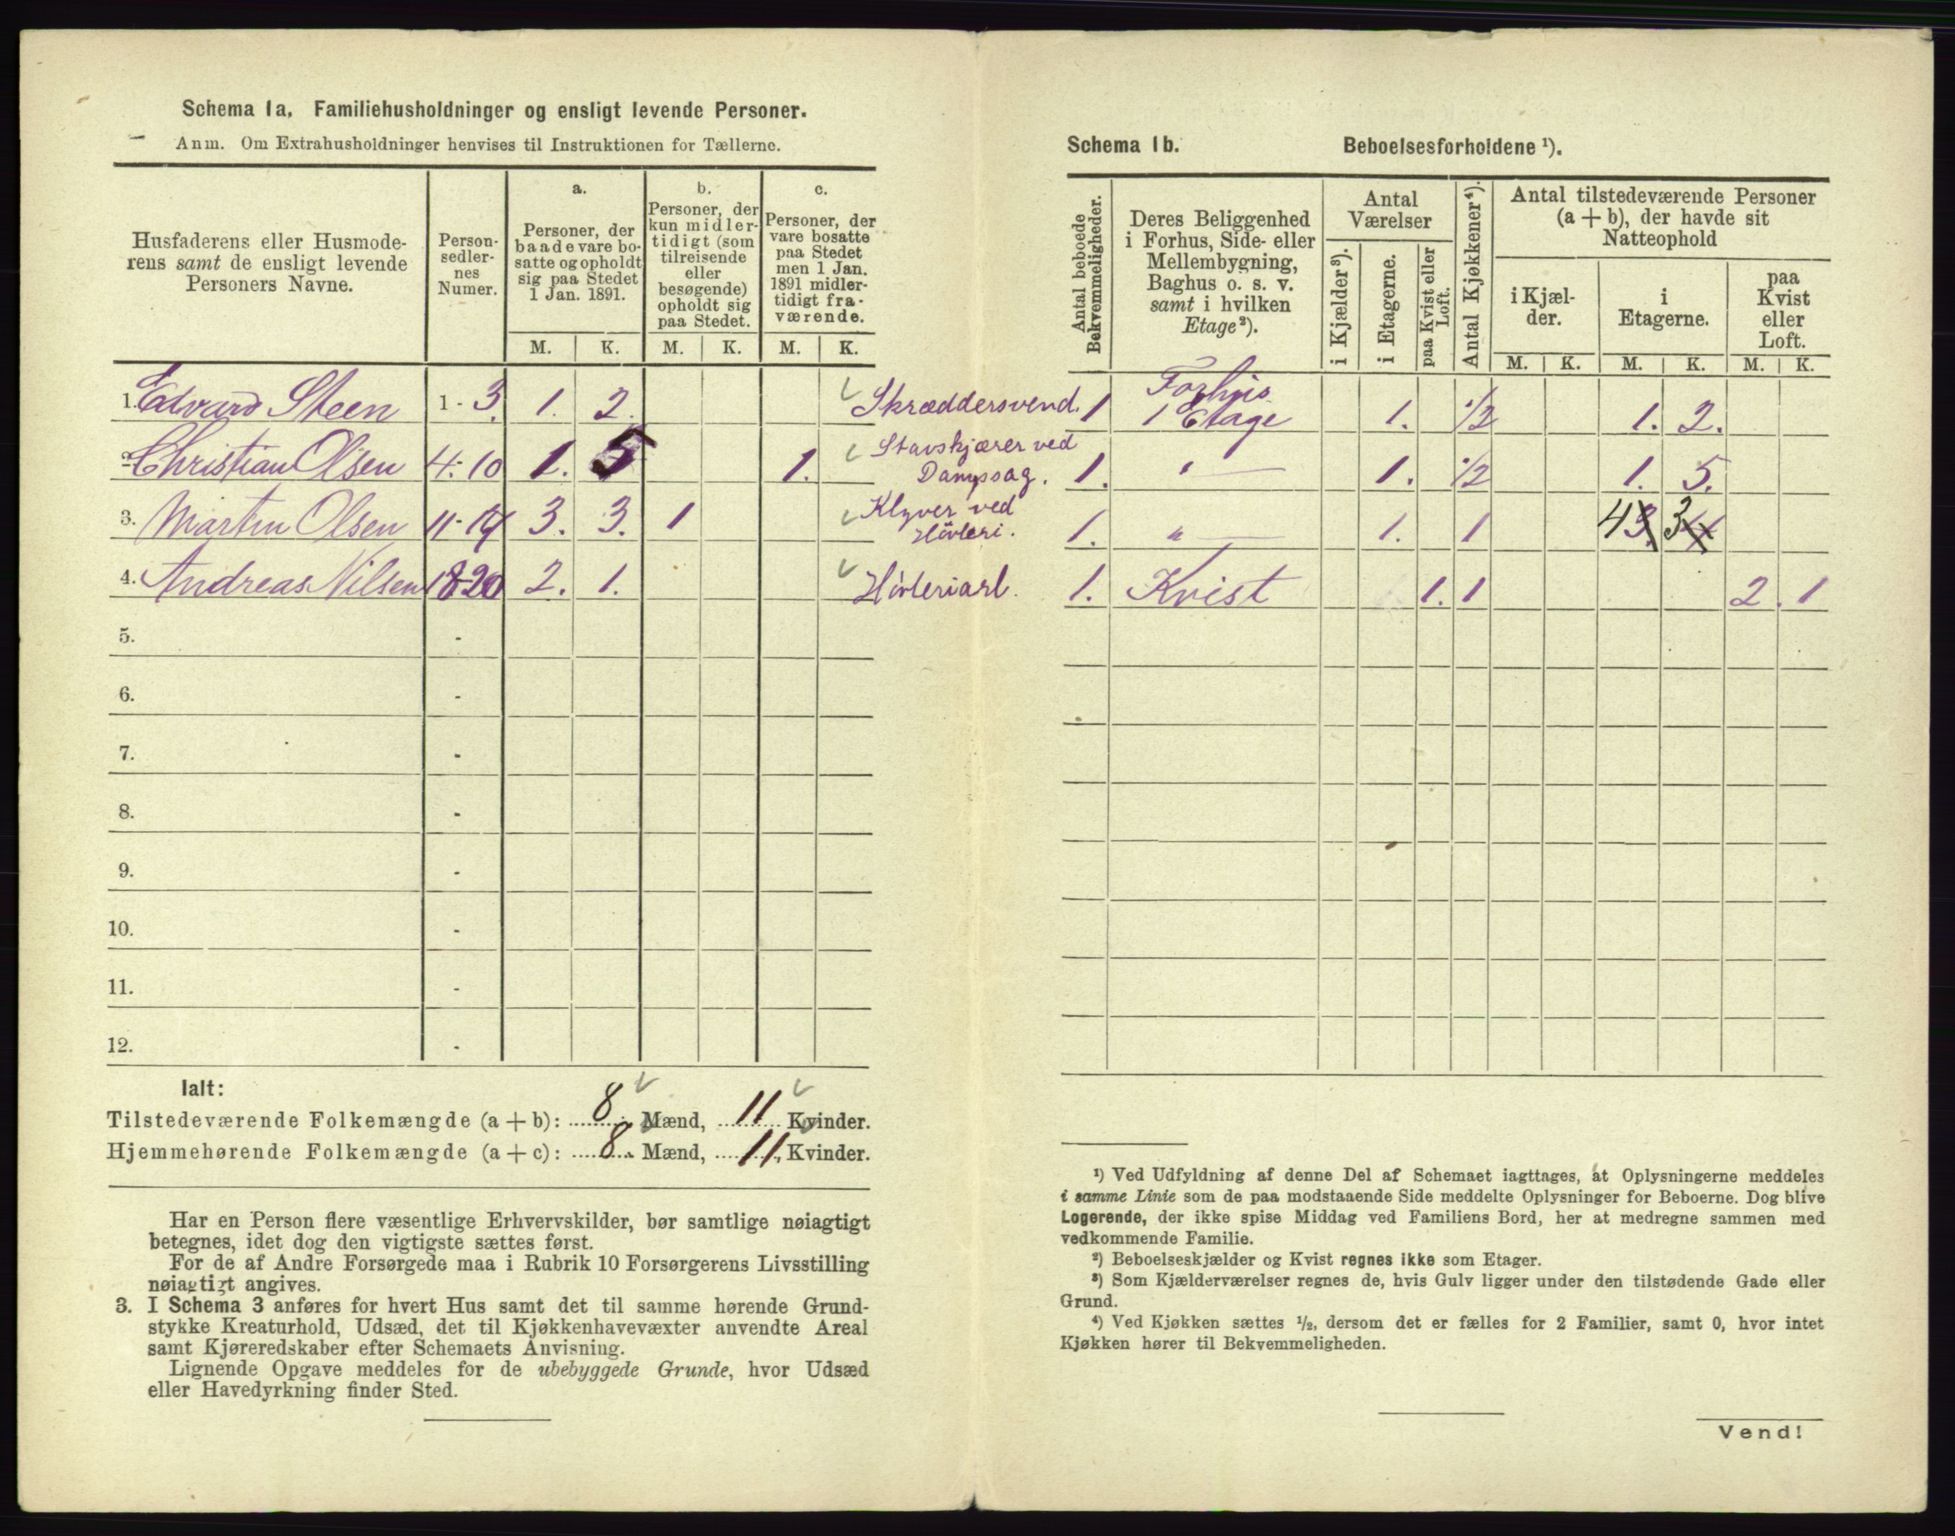 Schema 1a. Familiehusholdninger og ensligt levende Personer.
Anm. Om Extrahusholdninger henvises til Instruktionen for Tællerne.
Husfaderens eller Husmode-
rens samt de ensligt levende
Personers Navne.
Person-
sedler-
nes
Numer.
a.
Personer, der
baade vare bo-
satte og opholdt
sig paa Stedet
1 Jan. 1891.
b.
Personer, der
kun midler-
tidigt (som
tilreisende
eller
besøgende)
opholdt sig
paa Stedet.
c.
Personer, der
vare bosatte
paa Stedet
men 1 Jan.
1891 midler-
tidigt fra-
værende.
M. K. M. K. M. K.
1. Edvard Steen 1-3. 1. 2. Skræddersvend.
2. Christian Olsen 4-10 1. 5 1. Stavskjærer ved
Dampsag.
3. Martin Olsen 11-17 3. 3. 1 Klyver ved
Høvleri.
4. Andreas Nilsen 18-20 2. 1. Høvleriarb.
5. -
6. -
7. -
8. -
9. -
10. -
11. -
12. -
Ialt:
Tilstedeværende Folkemængde (a + b): 8 Mænd, 11 Kvinder.
Hjemmehørende Folkemængde (a + c): 8 Mænd, 11 Kvinder.
Har en Person flere væsentlige Erhvervskilder, bør samtlige nøiagtigt
betegnes, idet dog den vigtigste sættes først.
For de af Andre Forsørgede maa i Rubrik 10 Forsørgerens Livsstilling
nøiagtigt angives.
3. I Schema 3 anføres for hvert Hus samt det til samme hørende Grund-
stykke Kreaturhold, Udsæd, det til Kjøkkenhavevæxter anvendte Areal
samt Kjøreredskaber efter Schemaets Anvisning.
Lignende Opgave meddeles for de ubebyggede Grunde, hvor Udsæd
eller Havedyrkning finder Sted.
Schema 1b. Beboelsesforholdene ¹).
Antal beboede
Bekvemmeligheder.
Deres Beliggenhed
i Forhus, Side- eller
Mellembygning,
Baghus o. s. v.
samt i hvilken
Etage²).
Antal
Værelser
i Kjælder³).
i Etagerne.
paa Kvist eller
Loft.
Antal Kjøkkener⁴).
Antal tilstedeværende Personer
(a + b), der havde sit
Natteophold
i Kjæl-
der.
i
Etagerne.
paa
Kvist
eller
Loft.
M. K. M. K. M. K.
1 Forhus
1 Etage 1. 1/2 1. 2.
1. " — 1. 1/2 1. 5.
1. " — 1. 1 4 3. 3 4
1. Kvist 1. 1 2. 1
¹) Ved Udfyldning af denne Del af Schemaet iagttages, at Oplysningerne meddeles
i samme Linie som de paa modstaaende Side meddelte Oplysninger for Beboerne. Dog blive
Logerende, der ikke spise Middag ved Familiens Bord, her at medregne sammen med
vedkommende Familie.
²) Beboelseskjælder og Kvist regnes ikke som Etager.
³) Som Kjælderværelser regnes de, hvis Gulv ligger under den tilstødende Gade eller
Grund.
⁴) Ved Kjøkken sættes ½, dersom det er fælles for 2 Familier, samt 0, hvor intet
Kjøkken hører til Bekvemmeligheden.
Vend!